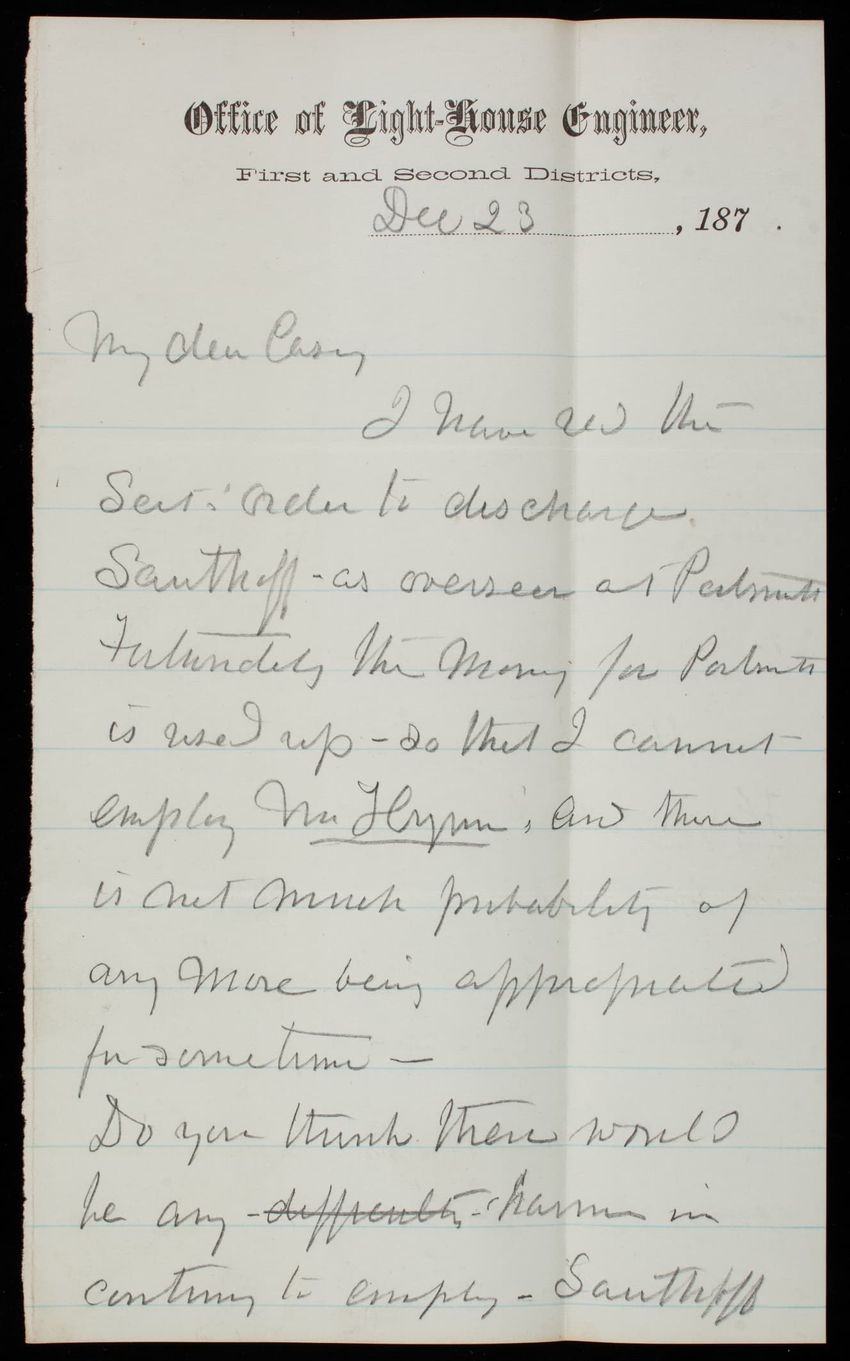 Office of Light-House Engineer,
First and Second Districts,
Dec 23, 187 .
My dear Casey
I have recd the
Sect.' order to discharge
Southoff - as overseer at Portsmth
Fortunately the money for Portsmth
is used up - so that I cannot
employ Mr Flynn, and there
is not much probability of
any more being appropriated
for sometime —
Do you think there would
be any - difficulty - harm in
continuing to employ - Southoff